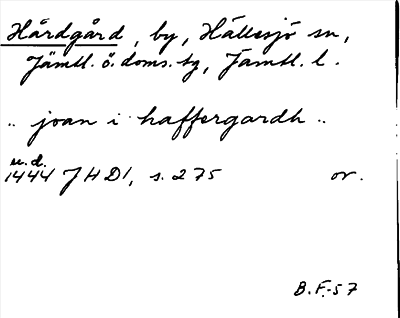 Hårdgård, by, Hällesjö sn,
Jämtl. ö. doms. tg, Jämtl. l.
.. joan i haffergardh ..
u.d.
1444 JHD1, s. 275 or.
B.F.-57